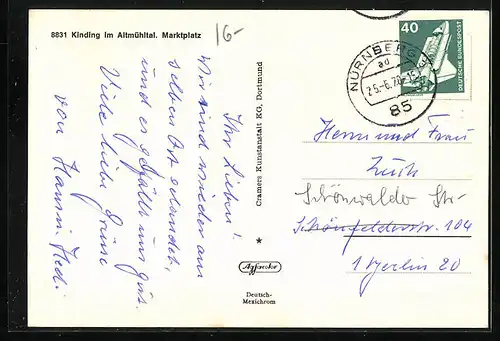 8831 Kinding im Altmühltal. Marktplatz
16-
Ihr Lieben!
Wir sind wieder am
selben Ort gelandet,
und es gefällt uns gut.
Viele liebe Grüße
von Hanni + Hedi
Cramers Kunstanstalt KG, Dortmund
Deutsch-
Mexichrom
40
DEUTSCHE BUNDESPOST
NÜRNBERG
ad
25.-6.76-15
85
Herrn und Frau
Schönwalder Str.
Schönfelderstr. 104
1 Berlin 20